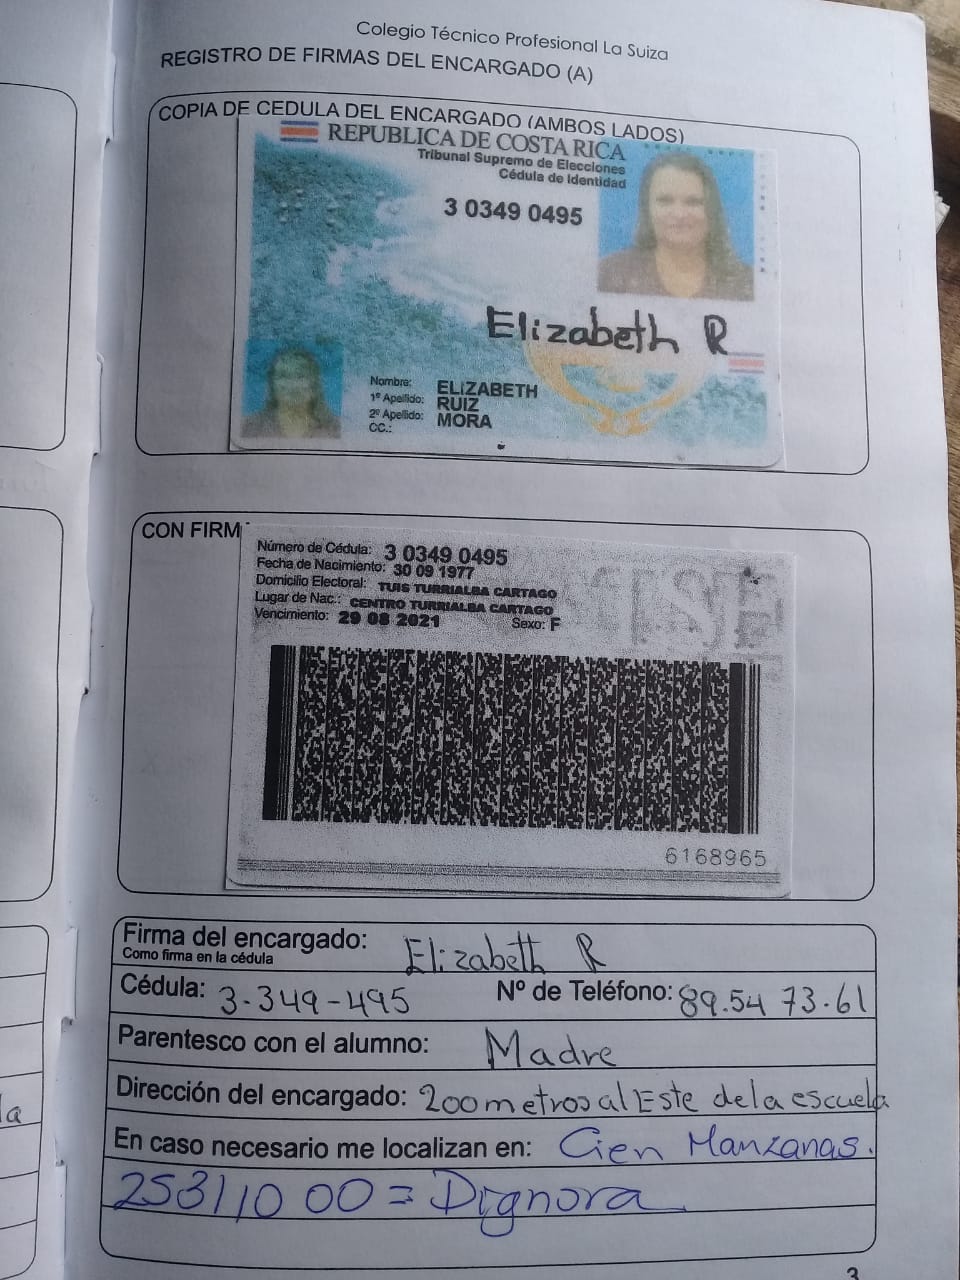 Colegio Técnico Profesional La Suiza
REGISTRO DE FIRMAS DEL ENCARGADO (A)
COPIA DE CEDULA DEL ENCARGADO (AMBOS LADOS)
REPUBLICA DE COSTA RICA
Tribunal Supremo de Elecciones
Cédula de Identidad
3 0349 0495
Elizabeth R
Nombre: ELIZABETH
1º Apellido: RUIZ
2º Apellido: MORA
CC.:
CON FIRM
Número de Cédula: 3 0349 0495
Fecha de Nacimiento: 30 09 1977
Domicilio Electoral: TUIS TURRIALBA CARTAGO
Lugar de Nac.: CENTRO TURRIALBA CARTAGO
Vencimiento: 29 08 2021 Sexo: F
TSE
6168965
Firma del encargado: Elizabeth R
Como firma en la cédula
Cédula: 3-349-495 Nº de Teléfono: 89.54 73.61
Parentesco con el alumno: Madre
Dirección del encargado: 200 metros al Este de la escuela
la
En caso necesario me localizan en: Cien Manzanas.
25311000 = Dignora
3